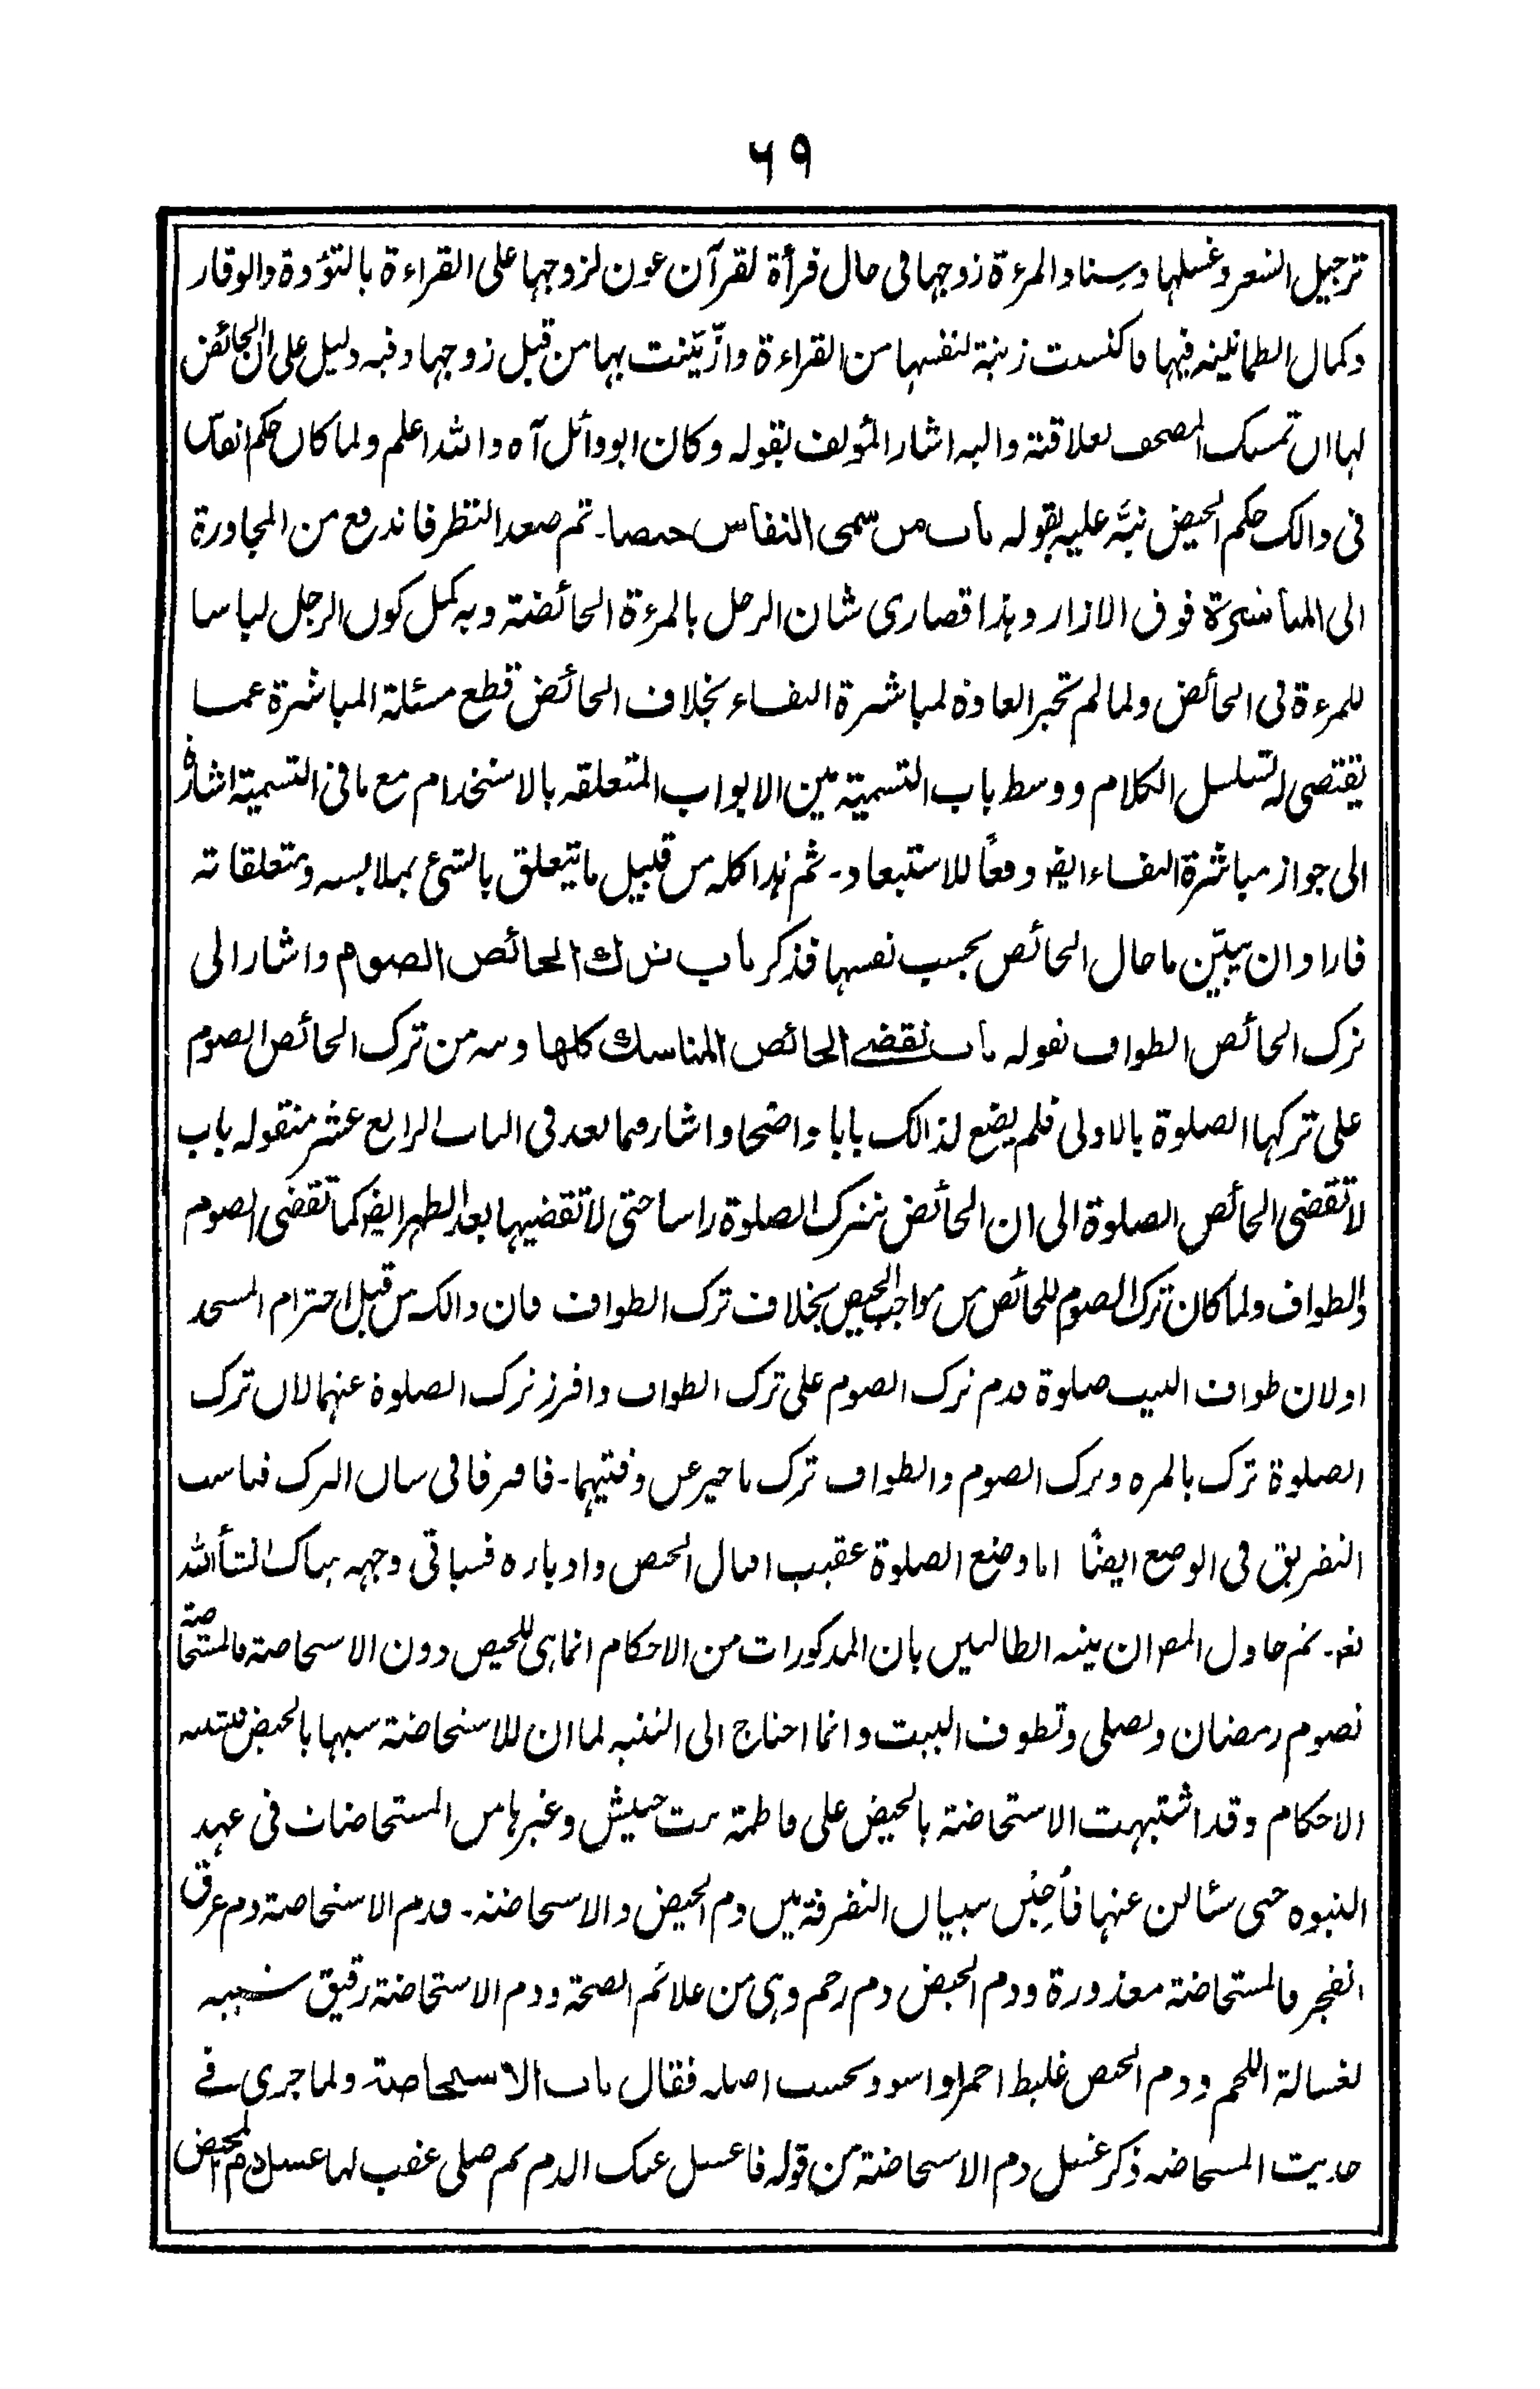 ۶۹
ترجيل الشعر وغسلها وسناد المرءة زوجها فى حال قرأة لقرآن عون لزوجها على القراءة بالتؤدة والوقار
وكمال الطمانينه فيها فاكتست زينة لنفسها من القراءة وازّيّنت بها من قبل زوجها وفيه دليل على ان الحائض
لها ان تمسك المصحف لعلاقتة واليه اشار المؤلف بقوله وكان ابو وائل آه والله اعلم ولما كان حكم النفاس
فى ذالك حكم الحيض نبّه عليه بقوله باب من سمى النفاس حيضا۔ ثم صعد النظر فاندفع من المجاورة
الى المباشرة فوق الازار وهذا قصارى شان الرجل بالمرءة الحائضة وبه كمل كون الرجل لباسا
للمرءة فى الحائض ولما لم تجر العادة لمباشرة النفساء بخلاف الحائض قطع مسئلة المباشرة عما
يقتضى له تسلسل الكلام ووسط باب التسمية بين الابواب المتعلقه بالاستخدام مع ما فى التسمية اشارة
الى جواز مباشرة النفساء ايضا دفعًا للاستبعاد۔ ثم هذا كله من قبيل ما يتعلق بالشئ بملابسه ومتعلقاته
فاراد ان يبيّن ما حال الحائض بحسب نفسها فذكر باب ترك الحائض الصوم واشار الى
ترك الحائض الطواف بقوله باب تقضى الحائض المناسك كلها ونبه من ترك الحائض الصوم
على تركها الصلوة بالاولى فلم يضع لذالك بابا واضحا واشار فيما بعد فى الباب الرابع عشر منقوله باب
لا تقضى الحائض الصلوة الى ان الحائض تترك الصلوة راسا حتى لا تقضيها بعد الطهر ايضا كما تقضى الصوم
والطواف ولما كان ترك الصوم للحائض من مواجب الحيض بخلاف ترك الطواف فان ذالك من قبل احترام المسجد
او لان طواف البيت صلوة قدم ترك الصوم على ترك الطواف وافرز ترك الصلوة عنهما لان ترك
الصلوة ترك بالمره وترك الصوم والطواف ترك تاخير عن وقتيهما۔ فافترقا فى شان الترك فناسب
التفريق فى الوضع ايضًا اما وضع الصلوة عقيب اقبال الحيض وادباره فسياتى وجهه هناك انشأ الله
تعا۔ ثم حاول المص ان ينبه الطالبين بان المذكورات من الاحكام انما هى للحيض دون الاستحاضة فالمستحاضة
تصوم رمضان وتصلى وتطوف البيت وانما احتاج الى التنبيه لما ان للاستحاضة شبها بالحيض
الاحكام وقد اشتبهت الاستحاضة بالحيض على فاطمة بنت حبيش وغيرها من المستحاضات فى عهد
النبوه حتى سئالن عنها فأجبن ببيان التفرقة بين دم الحيض والاستحاضة۔ فدم الاستحاضة دم عرق
انفجر فالمستحاضة معذورة ودم الحيض دم رحم وهى من علائم الصحة ودم الاستحاضة رقيق شبيه
لغسالة اللحم ودم الحيض غليظ احمر او اسود بحسب اصله فقال باب الاستحاضة ولما جرى فى
حديث المستحاضه ذكر غسل دم الاستحاضة من قوله فاغسل عنك الدم ثم صلى عقب لها غسل دم الحيض